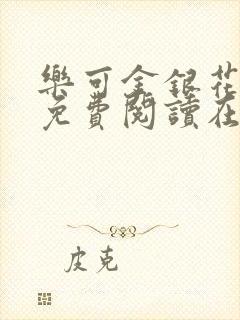 樂可金銀花
免費閱讀在
皮克